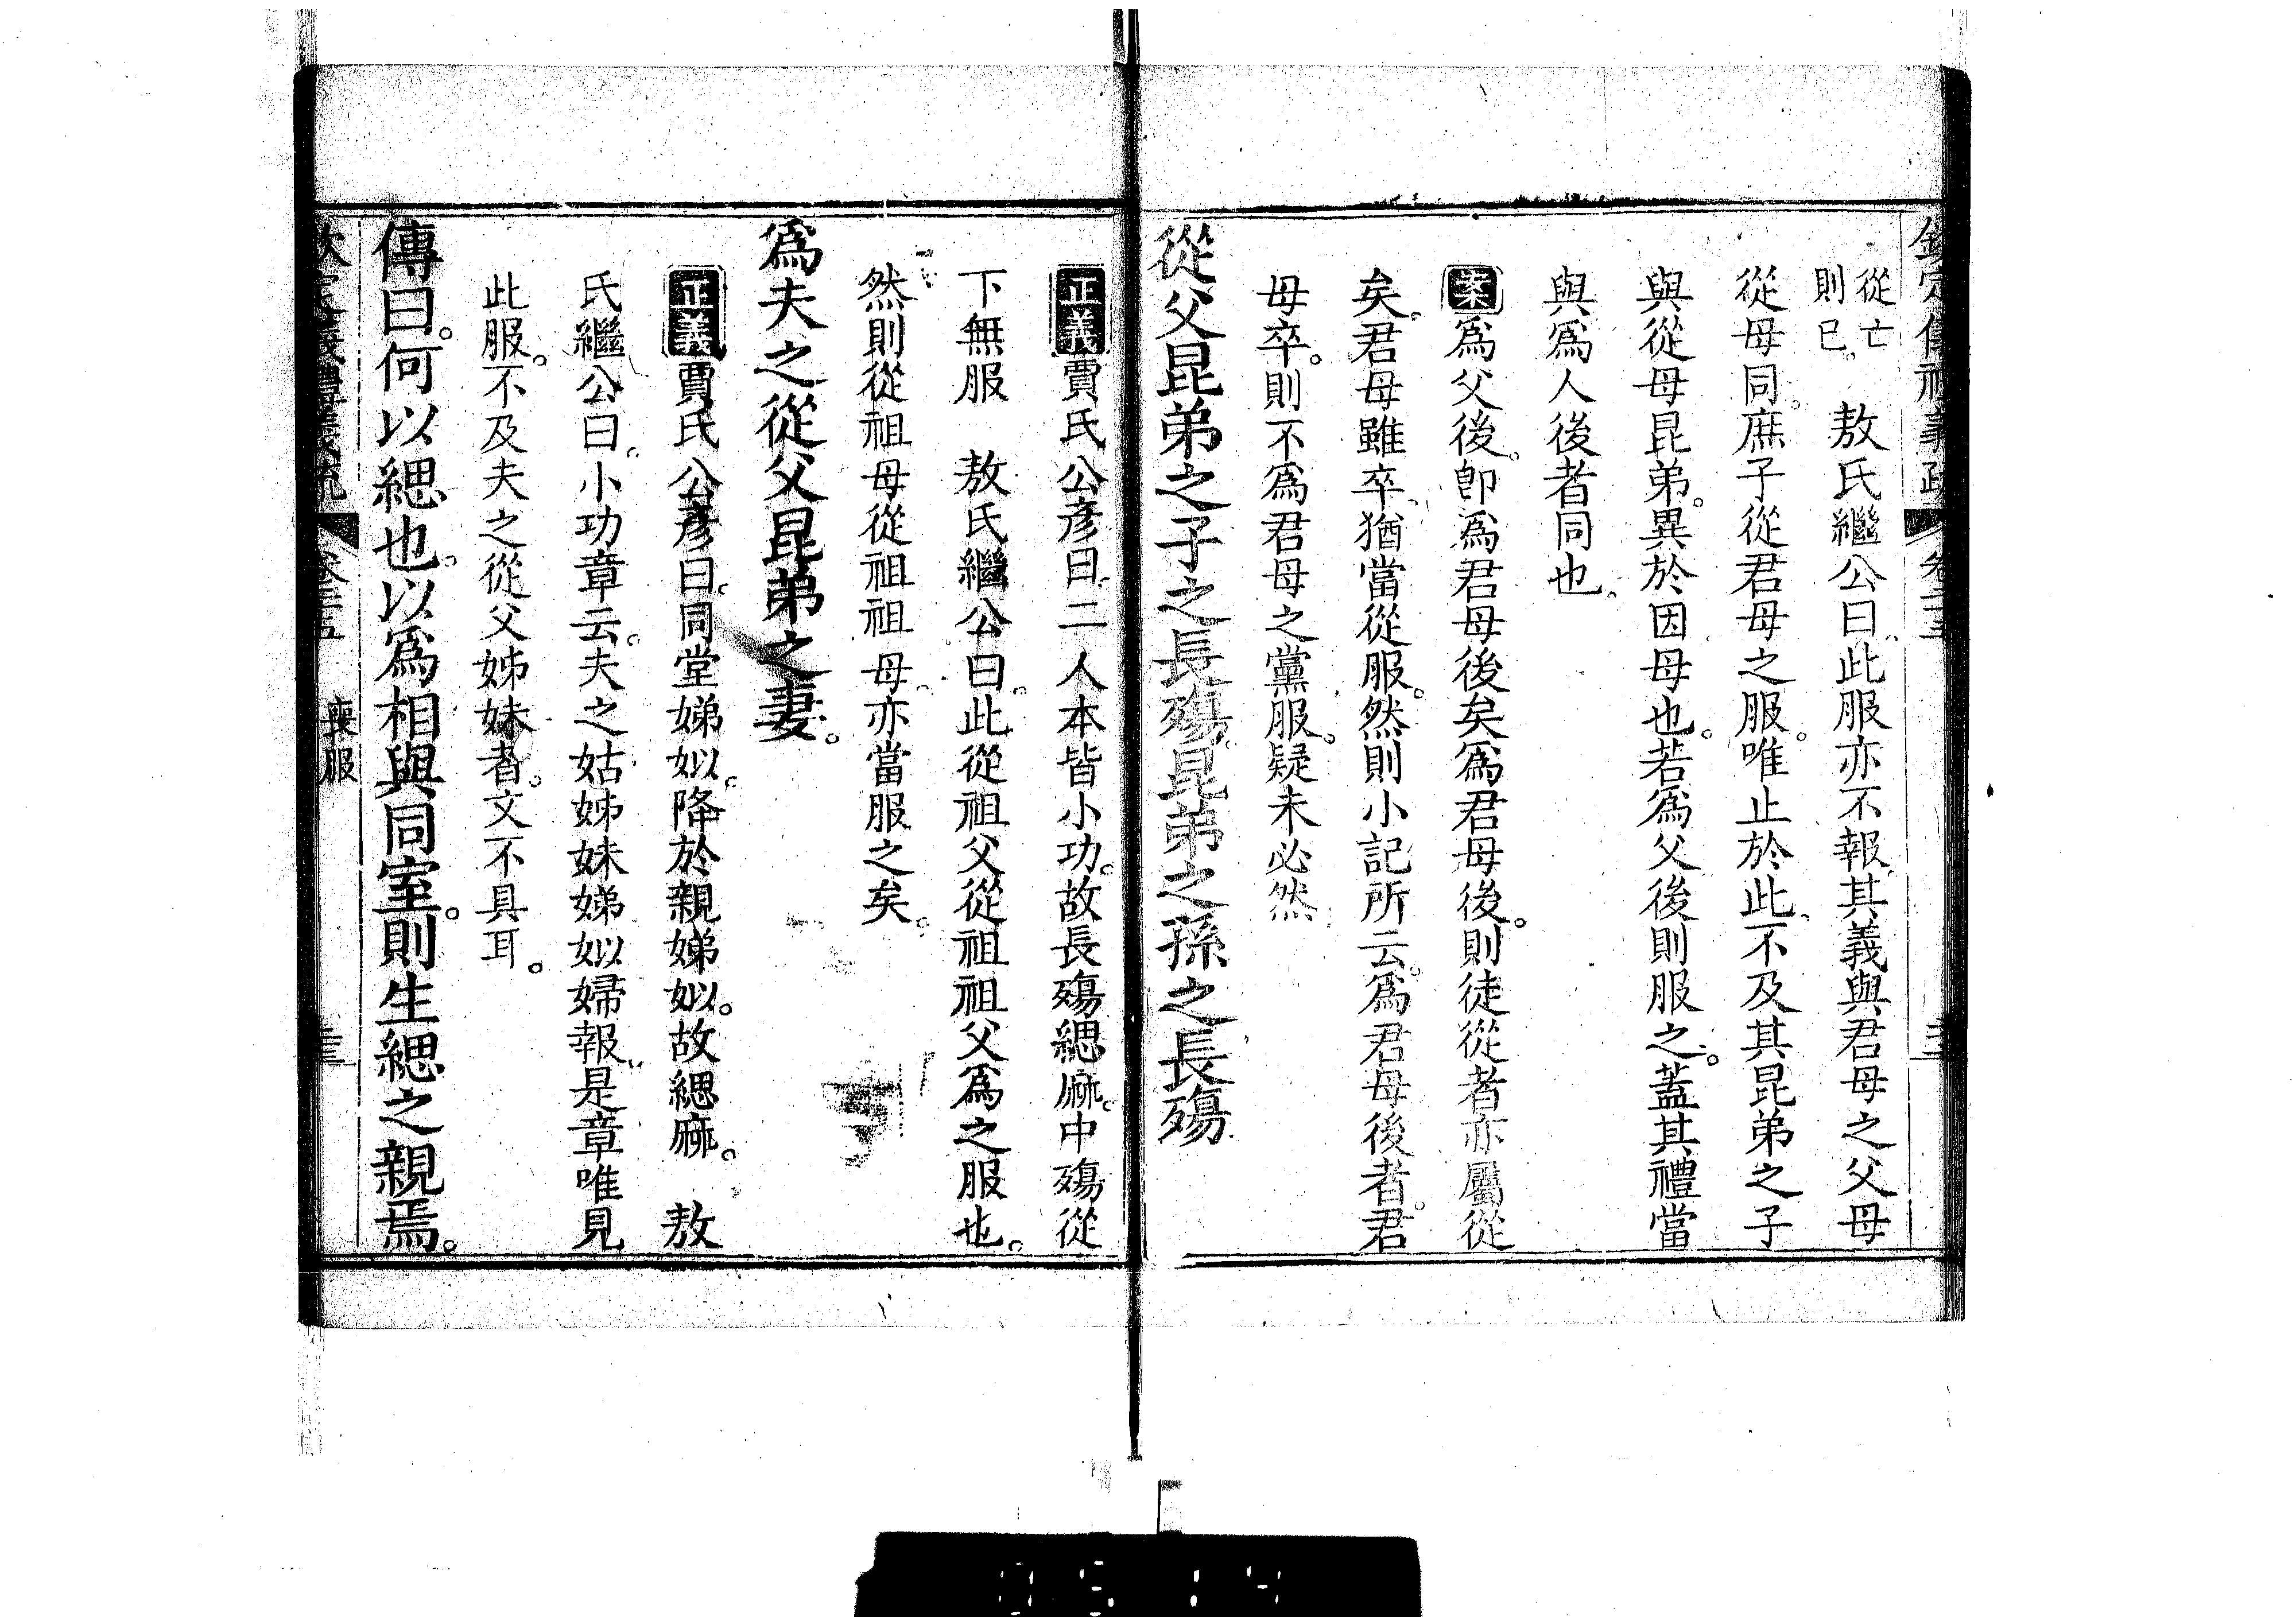 欽定儀禮義疏 卷二十五
從亡則已。 敖氏繼公曰。此服亦不報。其義與君母之父母
從母同。庶子從君母之服。唯止於此。不及其昆弟之子
與從母昆弟。異於因母也。若爲父後則服之。蓋其禮當
與爲人後者同也。
案爲父後。卽爲君母後矣爲君母後。則徒從者亦屬從
矣。君母雖卒。猶當從服。然則小記所云。爲君母後者。君
母卒。則不爲君母之黨服。疑未必然
從父昆弟之子之長殤。昆弟之孫之長殤
正義賈氏公彥曰。二人本皆小功。故長殤緦麻。中殤從
下無服 敖氏繼公曰。此從祖父從祖祖父爲之服也。
然則從祖母從祖祖母。亦當服之矣。
爲夫之從父昆弟之妻。
正義賈氏公彥曰。同堂娣姒。降於親娣姒。故緦麻。 敖
氏繼公曰。小功章云。夫之姑姊妹娣姒婦報。是章唯見
此服。不及夫之從父姊妹者。文不具耳。
傳曰。何以緦也。以爲相與同室。則生緦之親焉。
欽定儀禮義疏 卷二十五 喪服